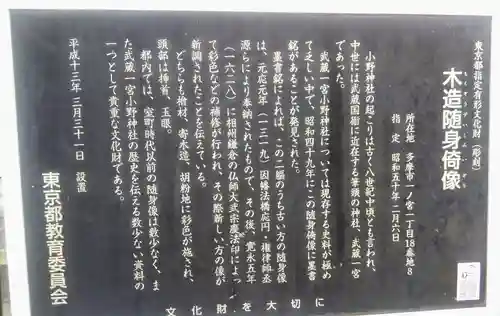 東京都指定有形文化財（彫刻）
木造随身倚像
もくぞうずいしんいぞう
所在地 多摩市一ノ宮一丁目18番地8
指定 昭和五十年二月六日
小野神社の起こりは古く八世紀中頃ともいわれ、
中世には武蔵国衙に近在する筆頭の神社、武蔵一宮
であった。
武蔵一宮小野神社については現存する史料が極め
て乏しい中で、昭和四十九年にこの随身倚像に墨書
銘があることが発見された。
墨書銘によれば、この二軀のうち古い方の随身像
は、元応元年（一三一九）因幡法橋応円・権律師丞
源らにより奉納されたもので、その後、寛永五年
（一六二八）に相州鎌倉の仏師大弐宗慶法印によっ
て彩色などの補修が行われ、その際新しい方の像が
新調されたことを伝えている。
どちらも桧材、寄木造、胡粉地に彩色が施され、
頭部は挿首、玉眼。
都内では、室町時代以前の随身像は数少なく、ま
た武蔵一宮小野神社の歴史を伝える数少ない資料の
一つとして貴重な文化財である。
平成十三年三月三十一日 設置
東京都教育委員会
文化財を大切に